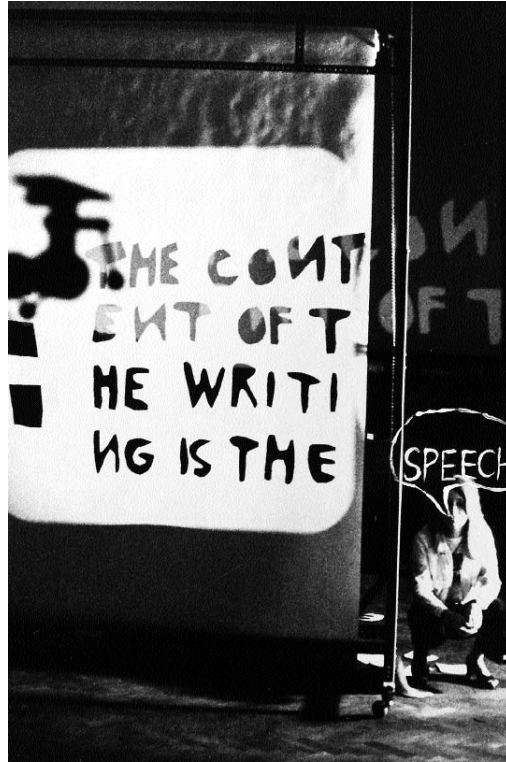 THE CONT
ENT OF T
HE WRITI
NG IS THE
ON
OF T
SPEECH